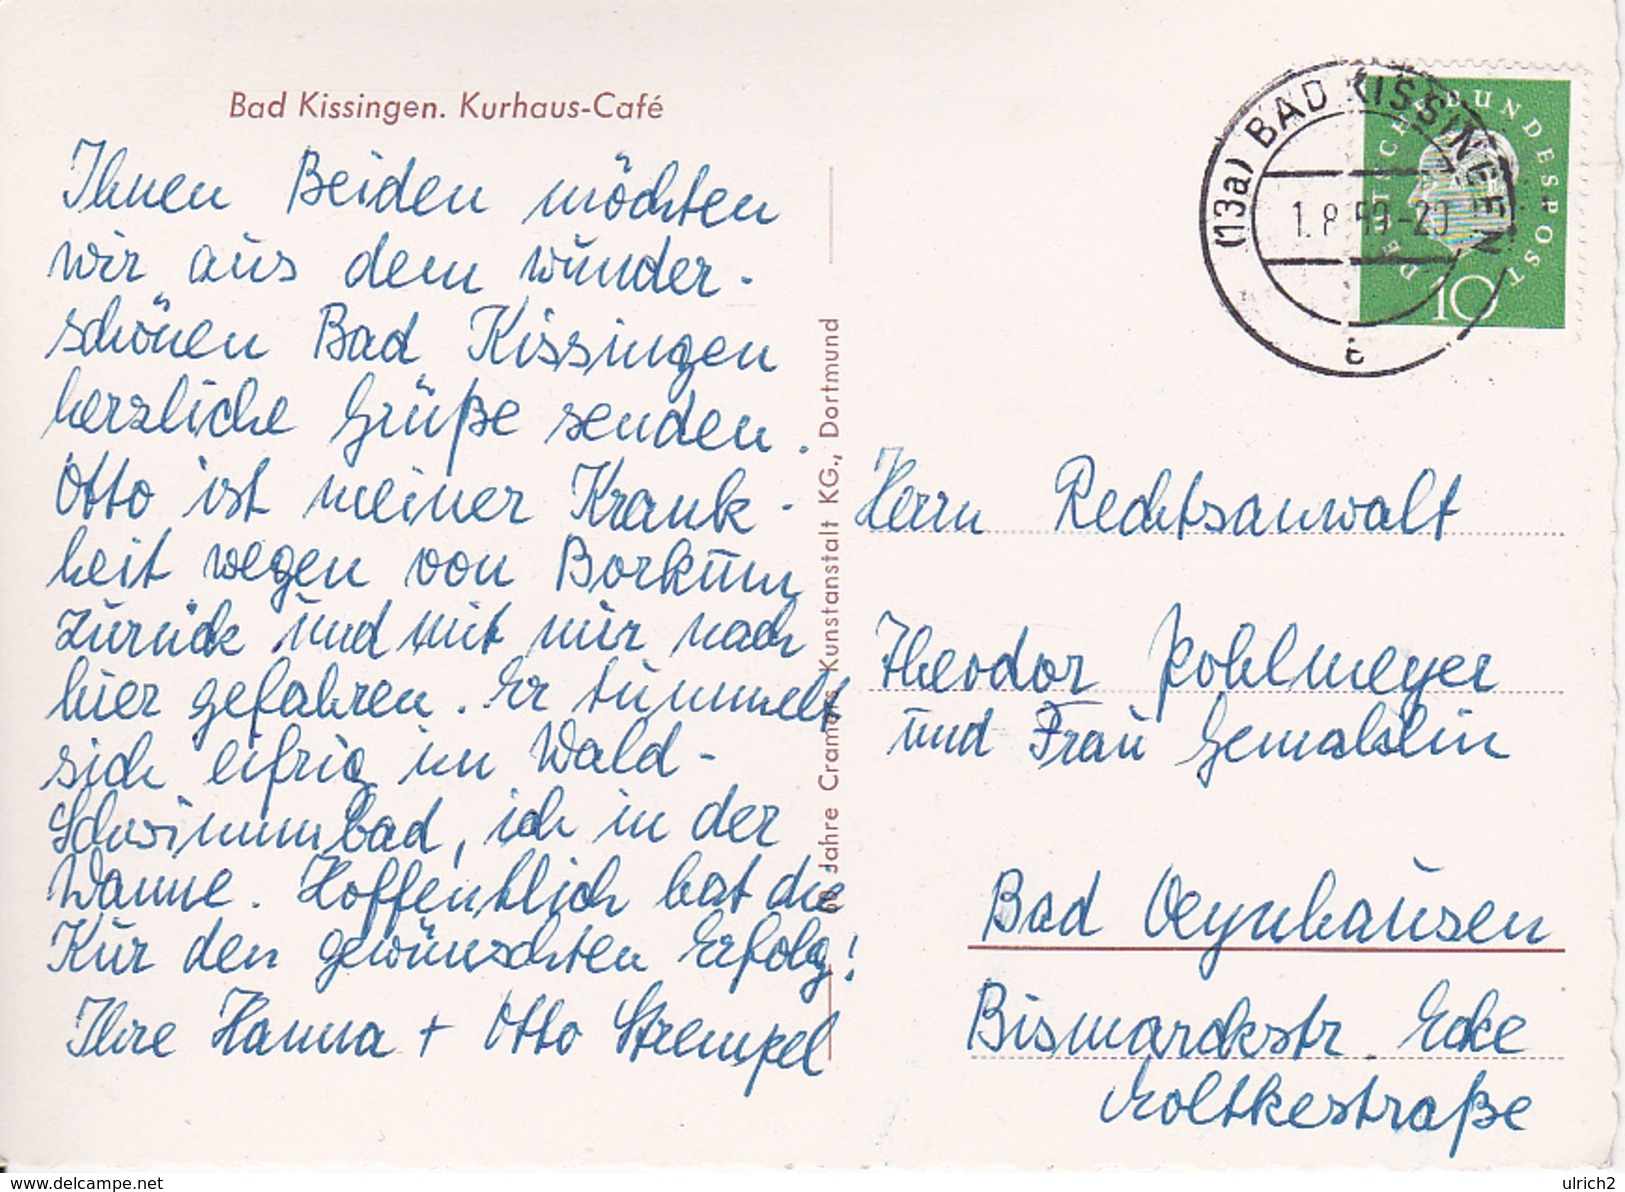 Bad Kissingen. Kurhaus-Café
Ihnen Beiden möchten
wir aus dem wunder-
schönen Bad Kissingen
herzliche Grüße senden.
Otto ist meiner Krank-
heit wegen von Borkum
zurück und mit mir nach
hier gefahren. Er tummelt
sich eifrig im Wald-
Schwimmbad, ich in der
Wanne. Hoffentlich hat die
Kur den gewünschten Erfolg!
Ihre Hanna + Otto Strempel
60 Jahre Cramers Kunstanstalt KG., Dortmund
(13a) BAD KISSINGEN
1.8.59-20
DEUTSCHE BUNDESPOST
10
Herrn Rechtsanwalt
Theodor Pohlmeyer
und Frau Gemahlin
Bad Oeynhausen
Bismarckstr. Ecke
Moltkestraße
delcampe.net
ulrich2